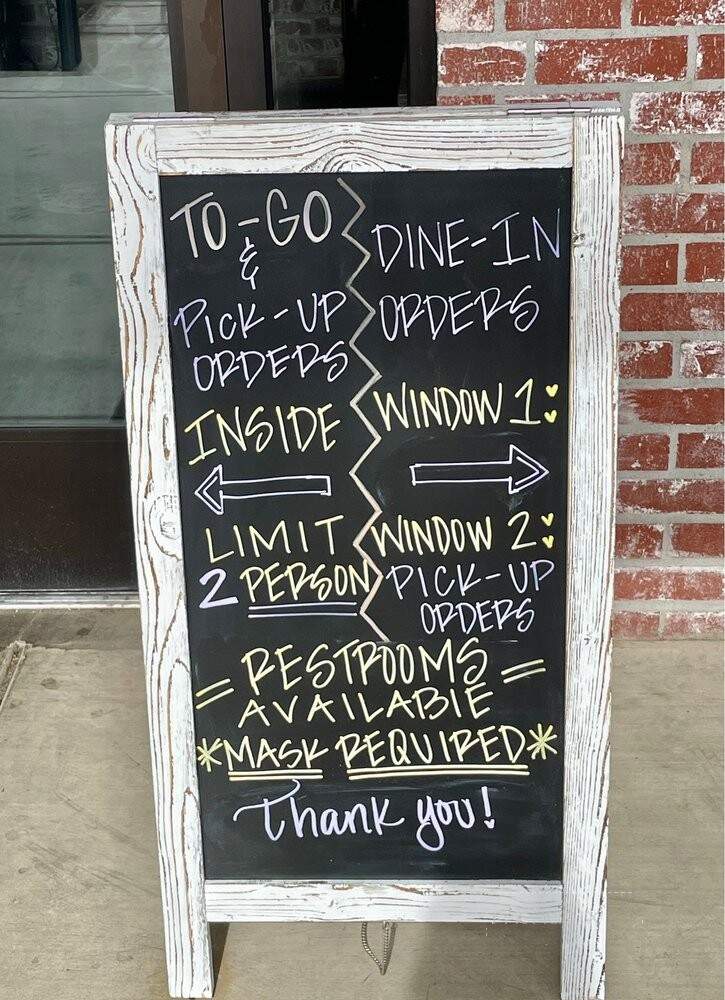 TO-GO
&
PICK-UP
ORDERS
INSIDE
LIMIT
2 PERSON
DINE-IN
ORDERS
WINDOW 1:
WINDOW 2:
PICK-UP
ORDERS
= RESTROOMS =
AVAILABLE
*MASK REQUIRED*
Thank you!